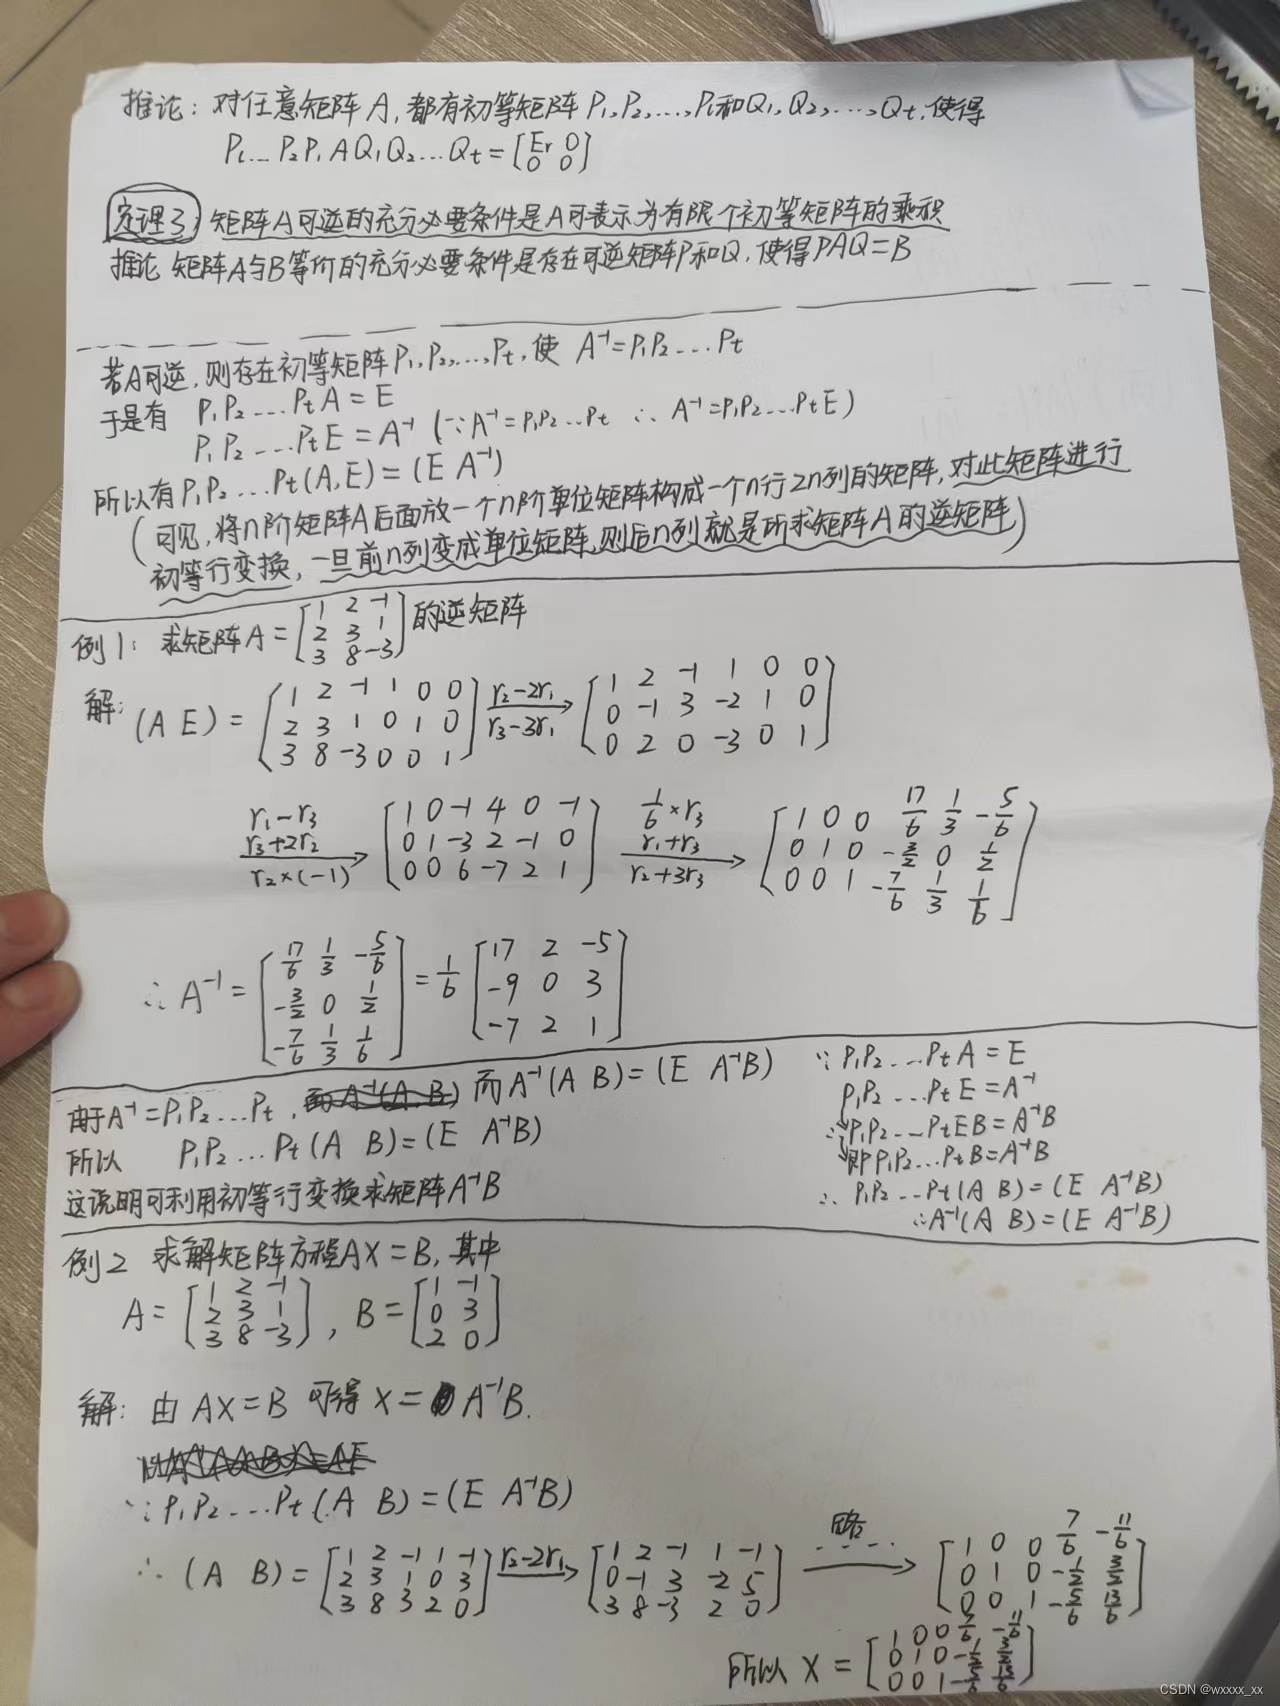 推论：对任意矩阵A，都有初等矩阵P₁,P₂,...,Pₗ和Q₁,Q₂,...,Qt，使得
Pₗ...P₂P₁AQ₁Q₂...Qt=[Er 0
0 0]
定理3：矩阵A可逆的充分必要条件是A可表示为有限个初等矩阵的乘积
推论 矩阵A与B等价的充分必要条件是存在可逆矩阵P和Q，使得PAQ=B
若A可逆，则存在初等矩阵P₁,P₂,...,Pt，使 A⁻¹=P₁P₂...Pt
于是有 P₁P₂...PtA=E
P₁P₂...PtE=A⁻¹ (∵A⁻¹=P₁P₂...Pt ∴A⁻¹=P₁P₂...PtE)
所以有P₁P₂...Pt(A,E)=(E A⁻¹)
(可见，将n阶矩阵A后面放一个n阶单位矩阵构成一个n行2n列的矩阵，对此矩阵进行
初等行变换，一旦前n列变成单位矩阵，则后n列就是所求矩阵A的逆矩阵)
例1：求矩阵A=[1 2 -1
2 3 1
3 8 -3]的逆矩阵
解：(A E)=[1 2 -1 1 0 0
2 3 1 0 1 0
3 8 -3 0 0 1]
r₂-2r₁
r₃-3r₁
→[1 2 -1 1 0 0
0 -1 3 -2 1 0
0 2 0 -3 0 1]
r₁-r₃
r₃+2r₂
r₂×(-1)
→[1 0 -1 4 0 -1
0 1 -3 2 -1 0
0 0 6 -7 2 1]
1/6×r₃
r₁+r₃
r₂+3r₃
→[1 0 0 17/6 1/3 -5/6
0 1 0 -3/2 0 1/2
0 0 1 -7/6 1/3 1/6]
∴A⁻¹=[17/6 1/3 -5/6
-3/2 0 1/2
-7/6 1/3 1/6]
=1/6[17 2 -5
-9 0 3
-7 2 1]
由于A⁻¹=P₁P₂...Pt，而A⁻¹(A B)=(E A⁻¹B)
所以 P₁P₂...Pt(A B)=(E A⁻¹B)
这说明可利用初等行变换求矩阵A⁻¹B
∵P₁P₂...PtA=E
P₁P₂...PtE=A⁻¹
∴P₁P₂...PtEB=A⁻¹B
即P₁P₂...PtB=A⁻¹B
∴P₁P₂...Pt(A B)=(E A⁻¹B)
∴A⁻¹(A B)=(E A⁻¹B)
例2 求解矩阵方程AX=B，其中
A=[1 2 -1
2 3 1
3 8 -3]，B=[1 -1
0 3
2 0]
解：由AX=B 可得X=A⁻¹B.
∵P₁P₂...Pt(A B)=(E A⁻¹B)
∴(A B)=[1 2 -1 1 -1
2 3 1 0 3
3 8 3 2 0]
r₂-2r₁
→[1 2 -1 1 -1
0 -1 3 -2 5
3 8 -3 2 0]
略
→[1 0 0 7/6 -11/6
0 1 0 -1/2 3/2
0 0 1 -5/6 13/6]
所以X=[1 0 0 7/6 -11/6
0 1 0 -1/2 3/2
0 0 1 -5/6 13/6]
CSDN @wxxxx_xx